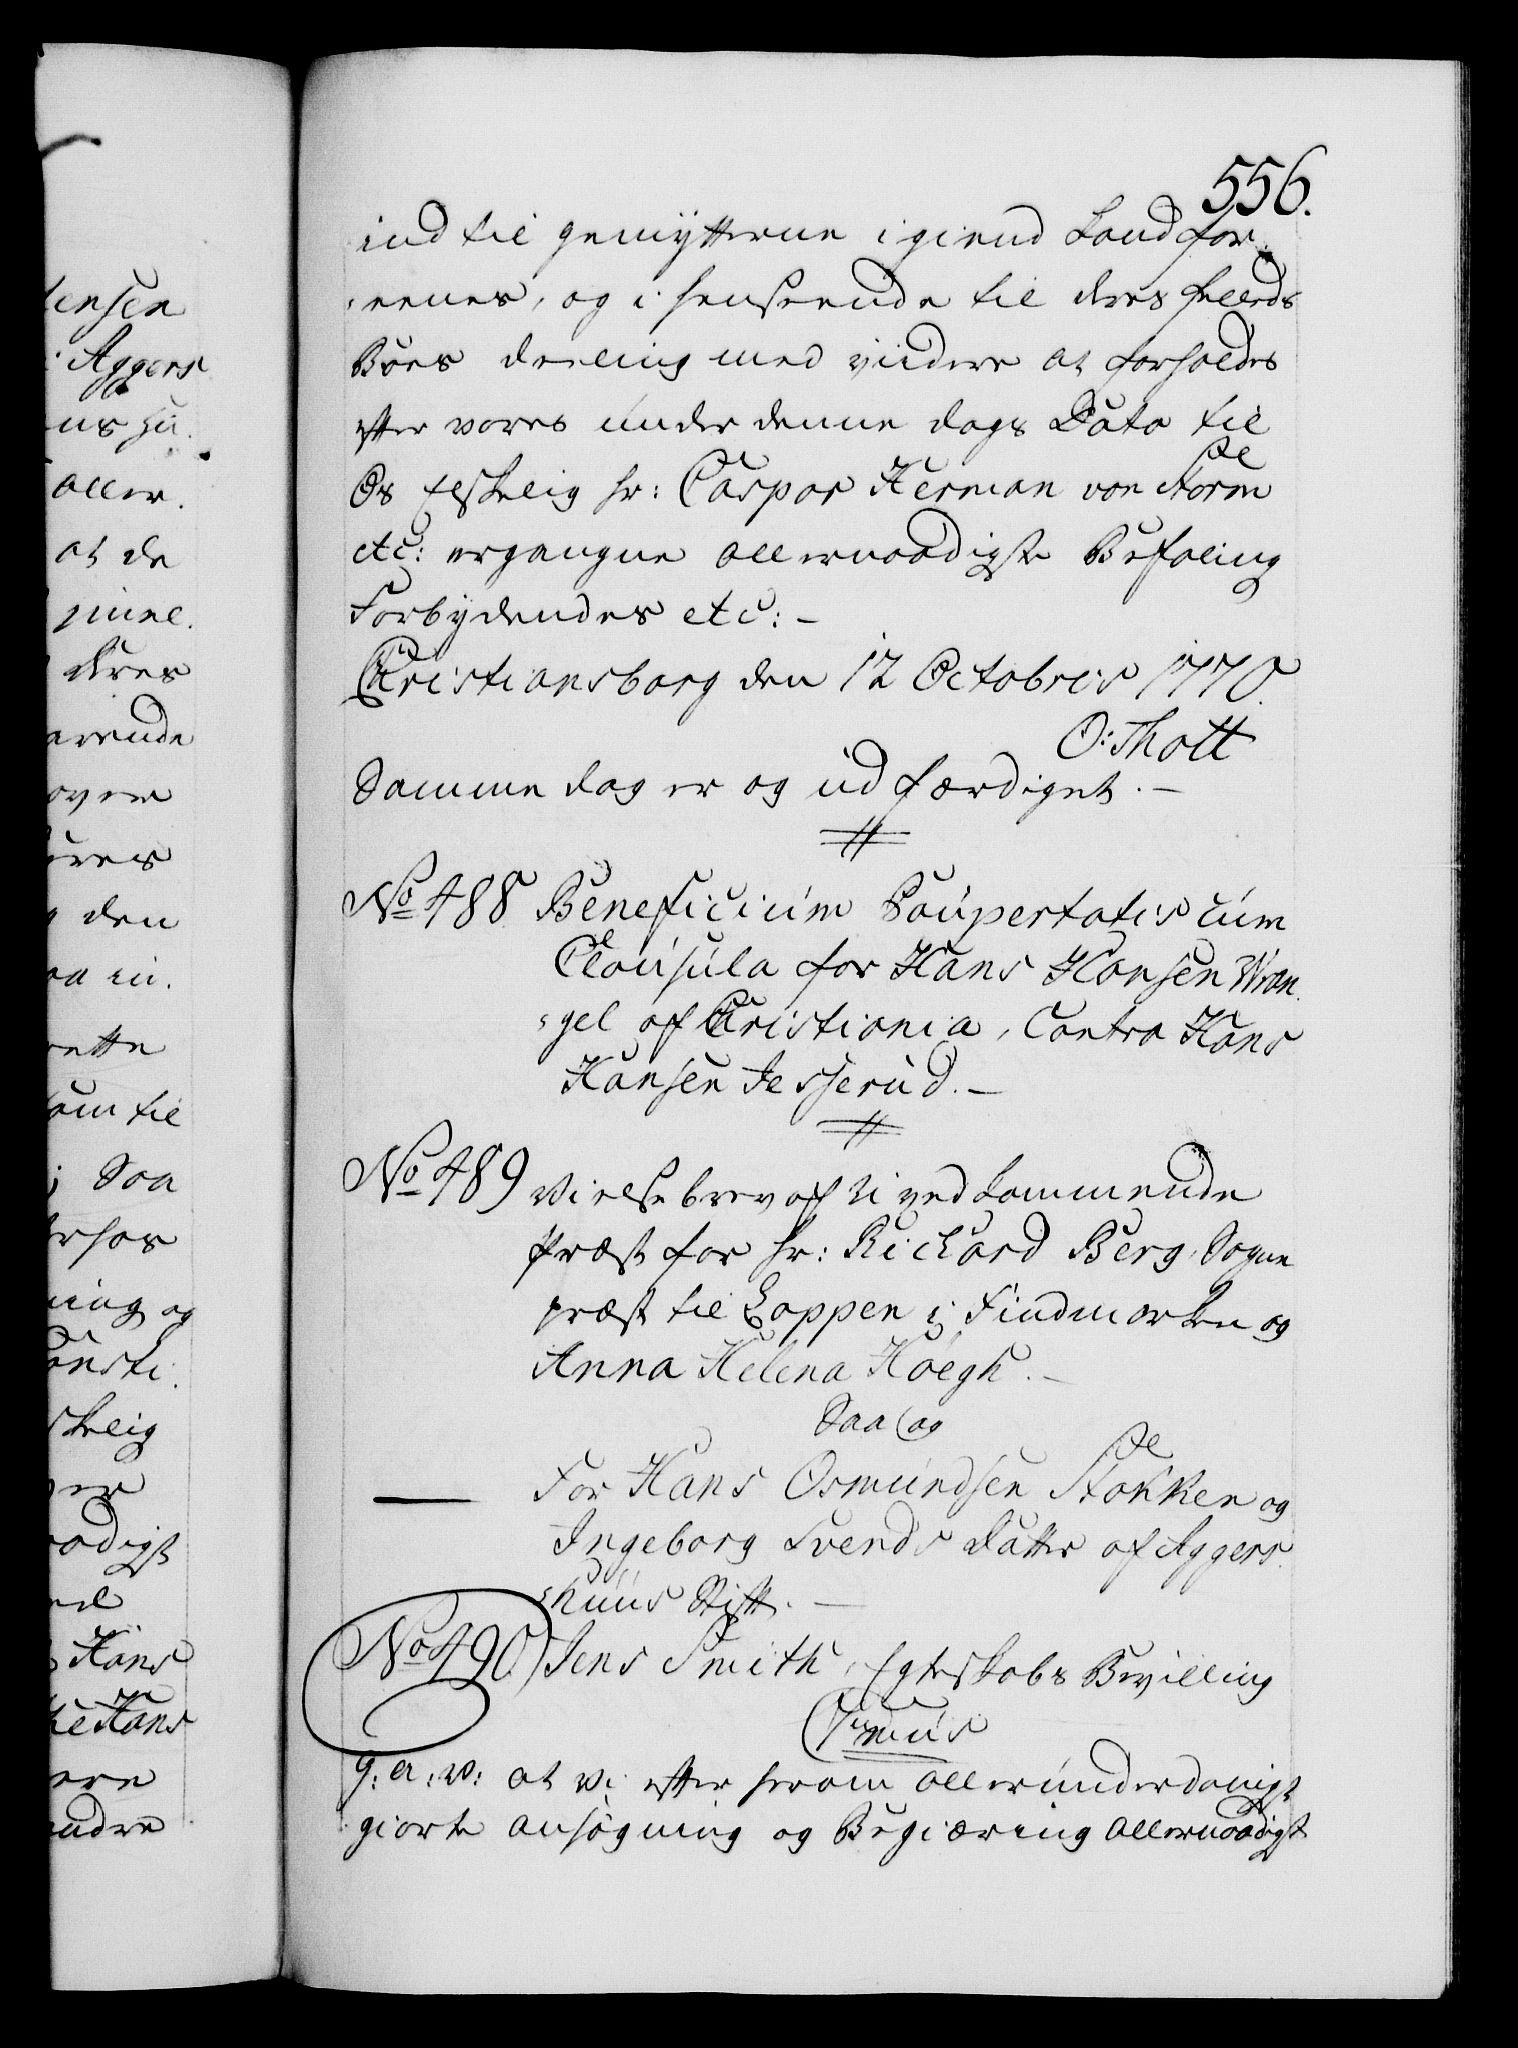 556.
ind til gemÿtterne igiend kand for¬
eenes, og i henseende til deres fælleds
Boes deeling med videre at forholdes
efter vores under denne dags Dato til
Os Elskelig hr: Caspar Herman von Storm
etc: ergangne allernaadigste Befaling
Forbydendes etc: -
Christiansborg den 12 Octobris 1770.
O: Thott
Samme dag er og udfærdiget. -
No 488 Beneficium Paupertatis cum
Clausula for Hans Hansen Wran¬
gel af Christiania, Contra Hans
Hansen Jesserud. -
No 489 Vielsebrev af uvedkommende
Præst for hr: Richard Berg, Sogne
præst til Loppen i Findmarken og
Anna Helena Høegh. -
Saa og
For Hans Osmundsen Stokken og
Ingeborg Svends Datter af Aggers¬
huus Stift. -
No 490. Jens Smith, Egteskabs Bevilling
7bmus
G: A: V: at Vi efter herom allerunderdanigst
giorte ansøgning og Begiæring allernaadigst